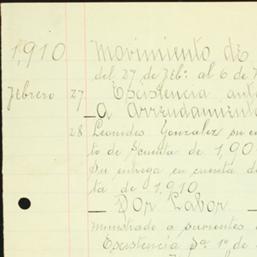 1,910 Movimiento de
del 27 de Feb. al 6 de
Febrero 27 Existencia ant
A Arrendamient
28 Leonides Gonzalez su en
to de de 1,90
Su entrega en cuenta d
ta de 1,910
Por Labor
Ministrado a parientes
Existencia Pa. 1o. de